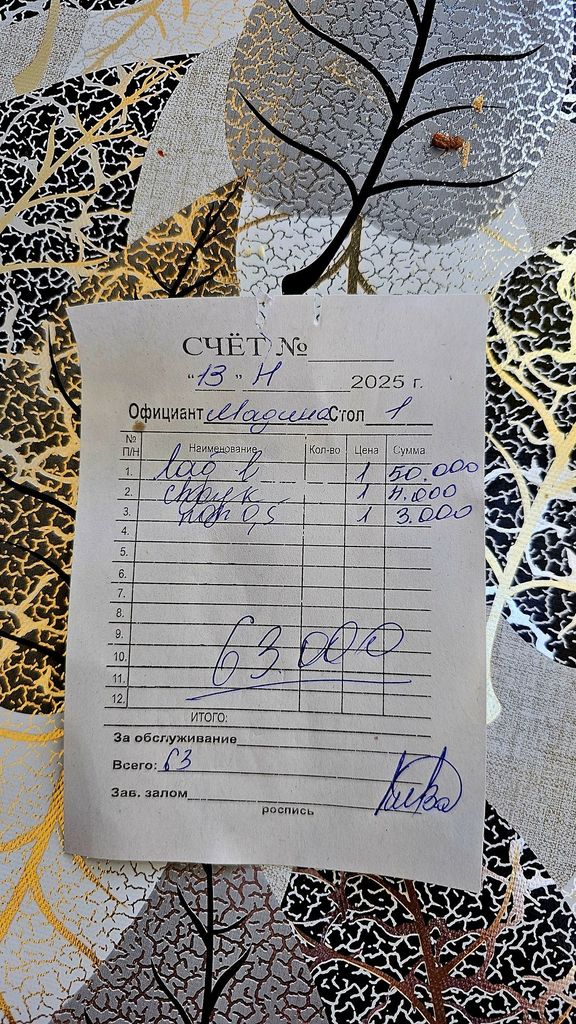 СЧЁТ №
"13" И 2025 г.
Официант Мадина Стол 1
№ П/Н Наименование Кол-во Цена Сумма
1. 1 50.000
2. 1 4.000
3. 0,5 1 3.000
4.
5.
6.
7.
8.
9.
10. 63.000
11.
12.
ИТОГО:
За обслуживание
Всего: 63
Зав. залом
роспись